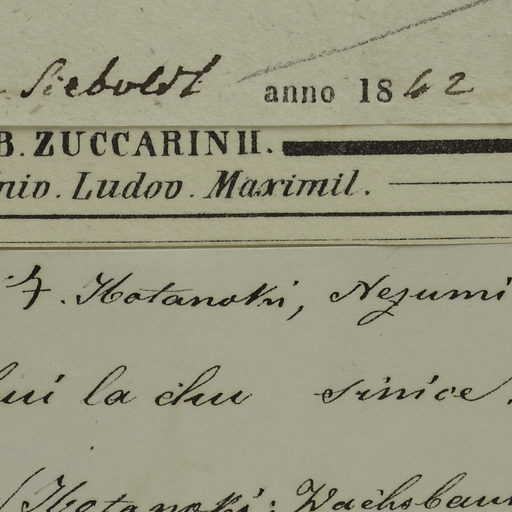 Siebold anno 1842
B. ZUCCARINII.
niv. Ludov. Maximil.
7. Hotanoki, Nezumi
la chu sinice.
(Hotanoki: Wachsbaum